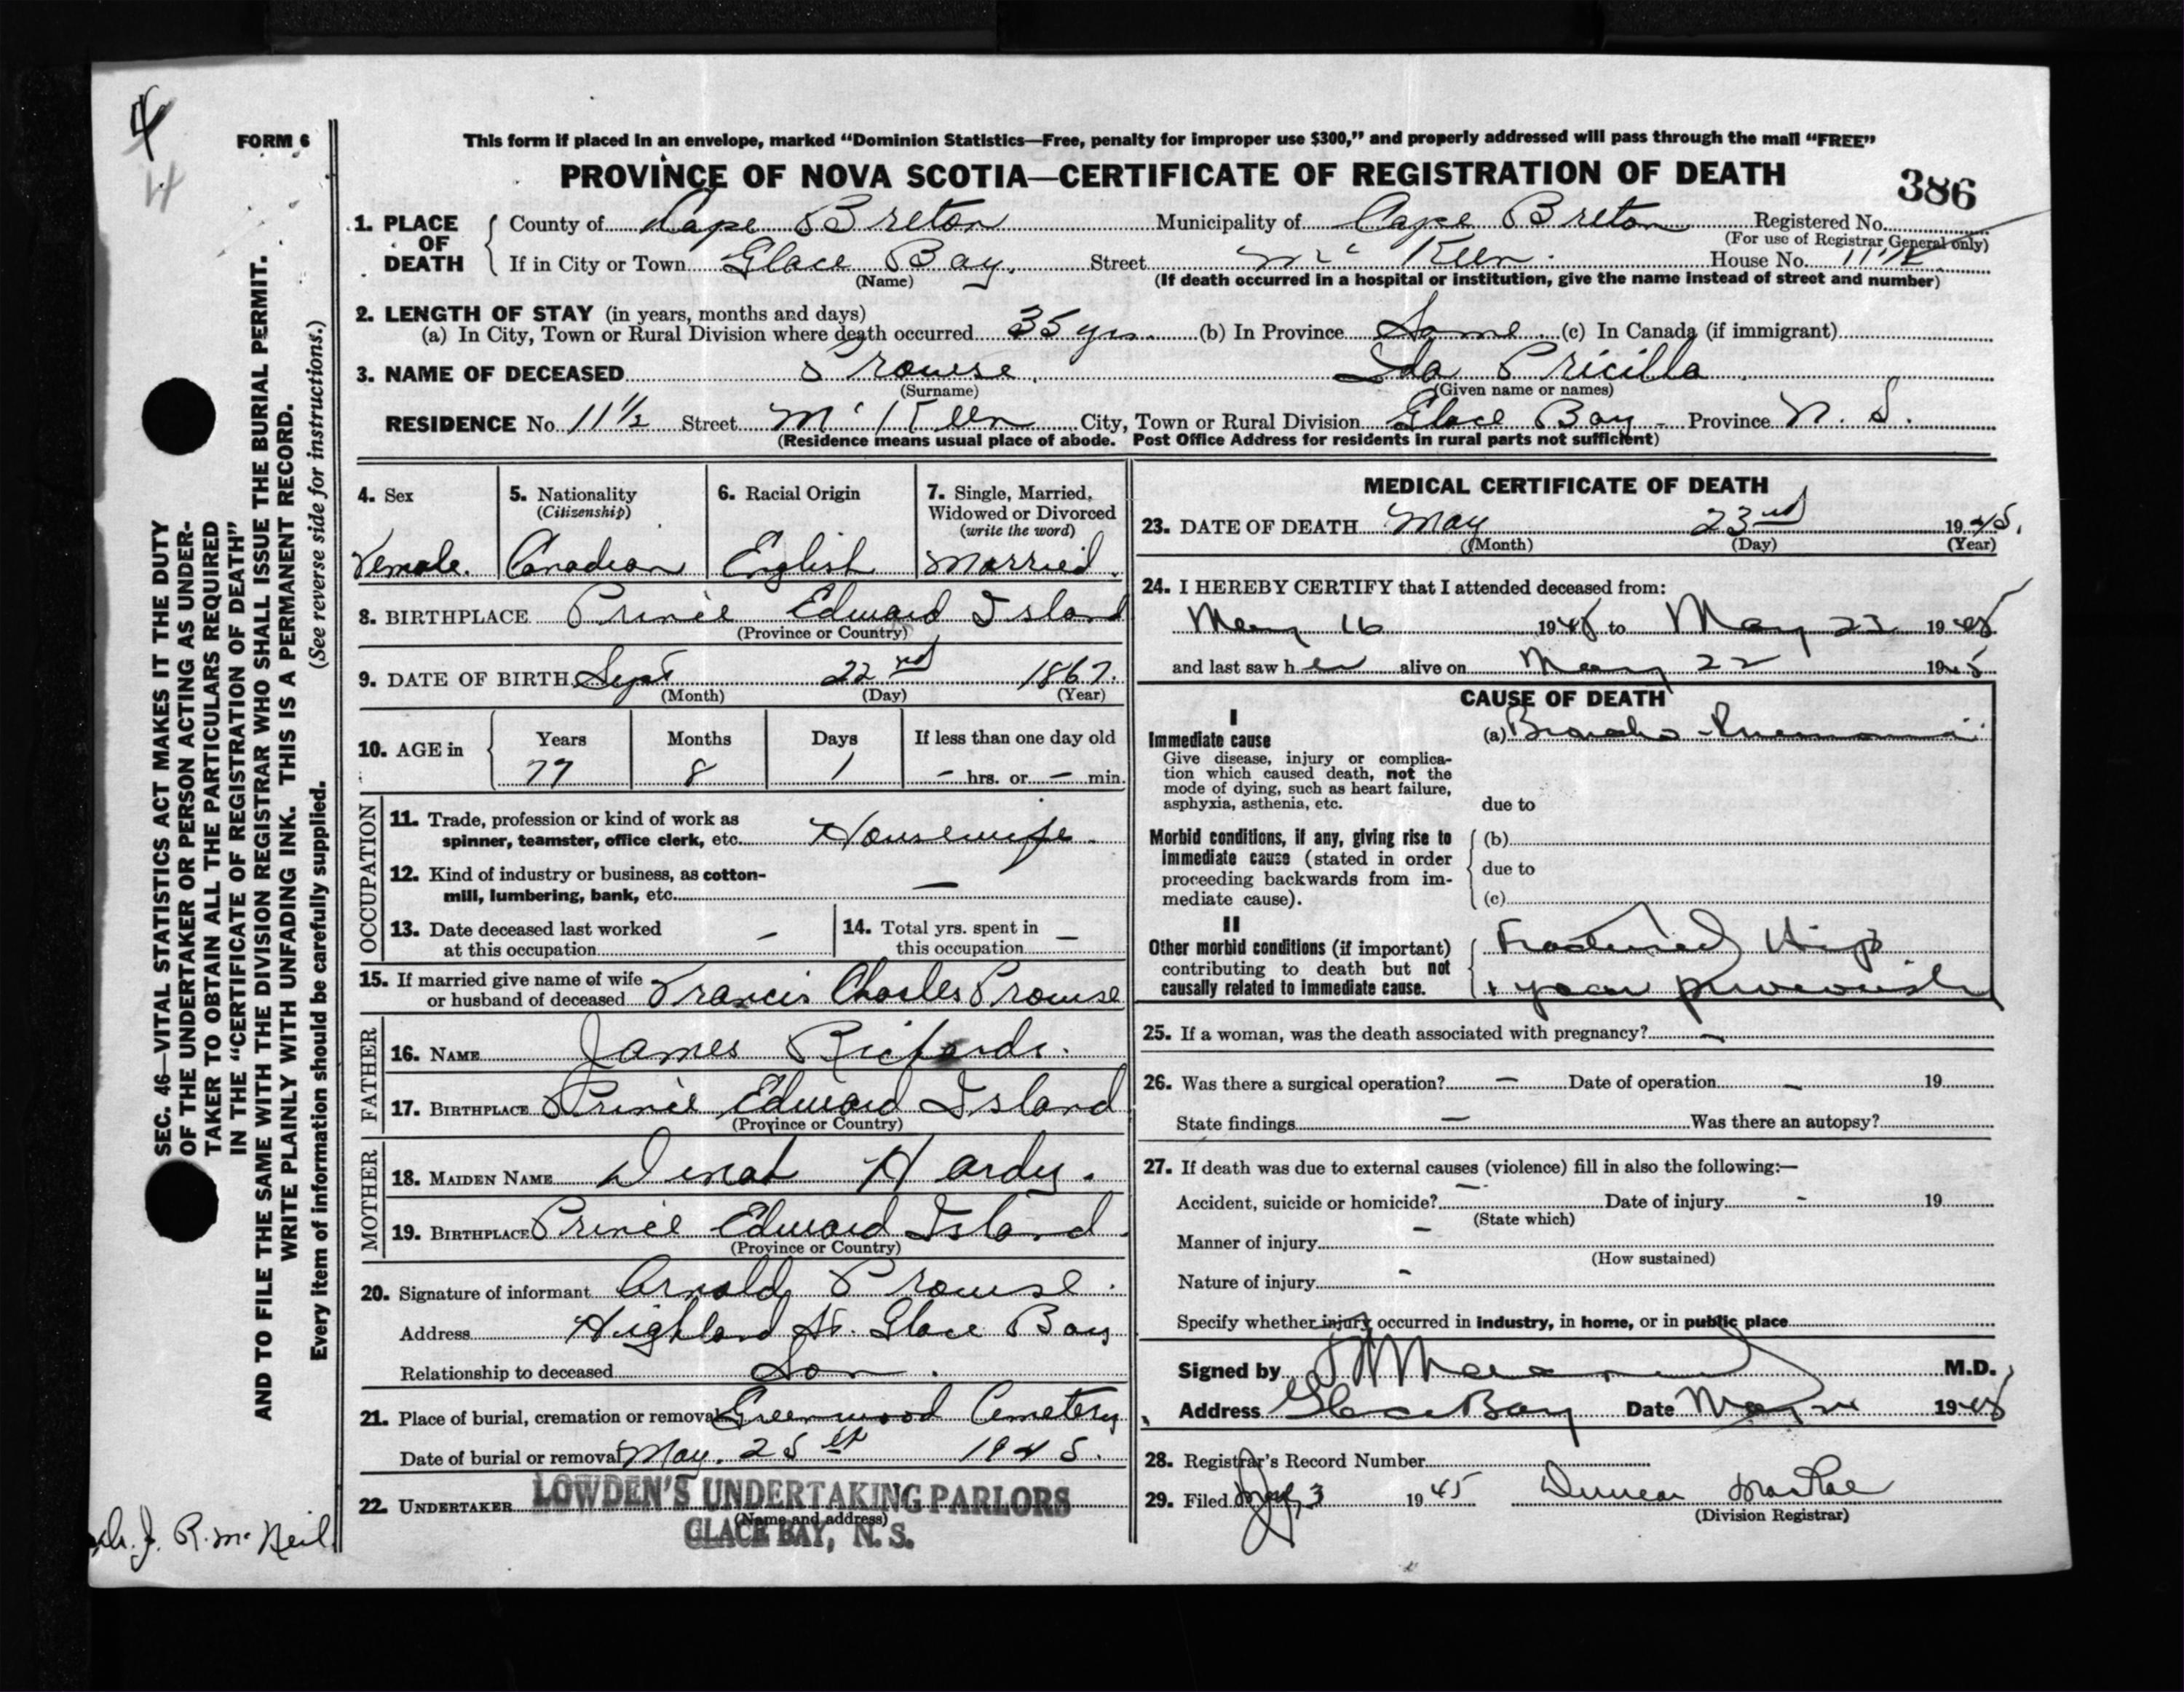 4
4
FORM 6
This form if placed in an envelope, marked “Dominion Statistics—Free, penalty for improper use $300,” and properly addressed will pass through the mail “FREE”
PROVINCE OF NOVA SCOTIA—CERTIFICATE OF REGISTRATION OF DEATH
386
1. PLACE OF DEATH County of Cape Breton Municipality of Cape Breton Registered No.
(For use of Registrar General only)
If in City or Town Glace Bay. Street Mc Keen. House No. 11 1/2
(Name) (If death occurred in a hospital or institution, give the name instead of street and number)
2. LENGTH OF STAY (in years, months and days)
(a) In City, Town or Rural Division where death occurred 35 yrs. (b) In Province Same (c) In Canada (if immigrant)
3. NAME OF DECEASED Prowse, Ida Pricilla
(Surname) (Given name or names)
RESIDENCE No. 11 1/2 Street Mc Keen City, Town or Rural Division Glace Bay - Province N. S.
(Residence means usual place of abode. Post Office Address for residents in rural parts not sufficient)
4. Sex 5. Nationality 6. Racial Origin 7. Single, Married,
(Citizenship) Widowed or Divorced
(write the word)
Female. Canadian English Married.
8. BIRTHPLACE Prince Edward Island
(Province or Country)
9. DATE OF BIRTH Sept 22nd 1867.
(Month) (Day) (Year)
10. AGE in Years Months Days If less than one day old
77 8 1 - hrs. or - min.
OCCUPATION
11. Trade, profession or kind of work as
spinner, teamster, office clerk, etc. Housewife.
12. Kind of industry or business, as cotton-
mill, lumbering, bank, etc. —
13. Date deceased last worked 14. Total yrs. spent in
at this occupation — this occupation —
15. If married give name of wife
or husband of deceased Francis Charles Prowse
FATHER
16. NAME James Richards.
17. BIRTHPLACE Prince Edward Island
(Province or Country)
MOTHER
18. MAIDEN NAME Dinah Hardy.
19. BIRTHPLACE Prince Edward Island.
(Province or Country)
20. Signature of informant Arnold Prowse.
Address Highland St. Glace Bay
Relationship to deceased Son.
21. Place of burial, cremation or removal Greenwood Cemetery
Date of burial or removal May. 25th 1945.
22. UNDERTAKER LOWDEN'S UNDERTAKING PARLORS
(Name and address)
GLACE BAY, N. S.
MEDICAL CERTIFICATE OF DEATH
23. DATE OF DEATH May 23rd 1945.
(Month) (Day) (Year)
24. I HEREBY CERTIFY that I attended deceased from:
May 16 1945 to May 23 1945
and last saw her alive on May 22 1945
CAUSE OF DEATH
I
Immediate cause (a) Broncho-Pneumonia
Give disease, injury or complica-
tion which caused death, not the
mode of dying, such as heart failure,
asphyxia, asthenia, etc. due to
Morbid conditions, if any, giving rise to (b)
immediate cause (stated in order due to
proceeding backwards from im-
mediate cause). (c)
II
Other morbid conditions (if important) Fractured Hip
contributing to death but not
causally related to immediate cause. 1 year previously
25. If a woman, was the death associated with pregnancy? -
26. Was there a surgical operation? - Date of operation - 19
State findings - Was there an autopsy?
27. If death was due to external causes (violence) fill in also the following:—
Accident, suicide or homicide? - Date of injury - 19
(State which)
Manner of injury -
(How sustained)
Nature of injury -
Specify whether injury occurred in industry, in home, or in public place
Signed by M.D.
Address Glace Bay Date May 1945
28. Registrar's Record Number
29. Filed 3 1945 Duncan MacRae
(Division Registrar)
SEC. 46—VITAL STATISTICS ACT MAKES IT THE DUTY
OF THE UNDERTAKER OR PERSON ACTING AS UNDER-
TAKER TO OBTAIN ALL THE PARTICULARS REQUIRED
IN THE “CERTIFICATE OF REGISTRATION OF DEATH”
AND TO FILE THE SAME WITH THE DIVISION REGISTRAR WHO SHALL ISSUE THE BURIAL PERMIT.
WRITE PLAINLY WITH UNFADING INK. THIS IS A PERMANENT RECORD.
Every item of information should be carefully supplied. (See reverse side for instructions.)
Dr. J. R. McNeil